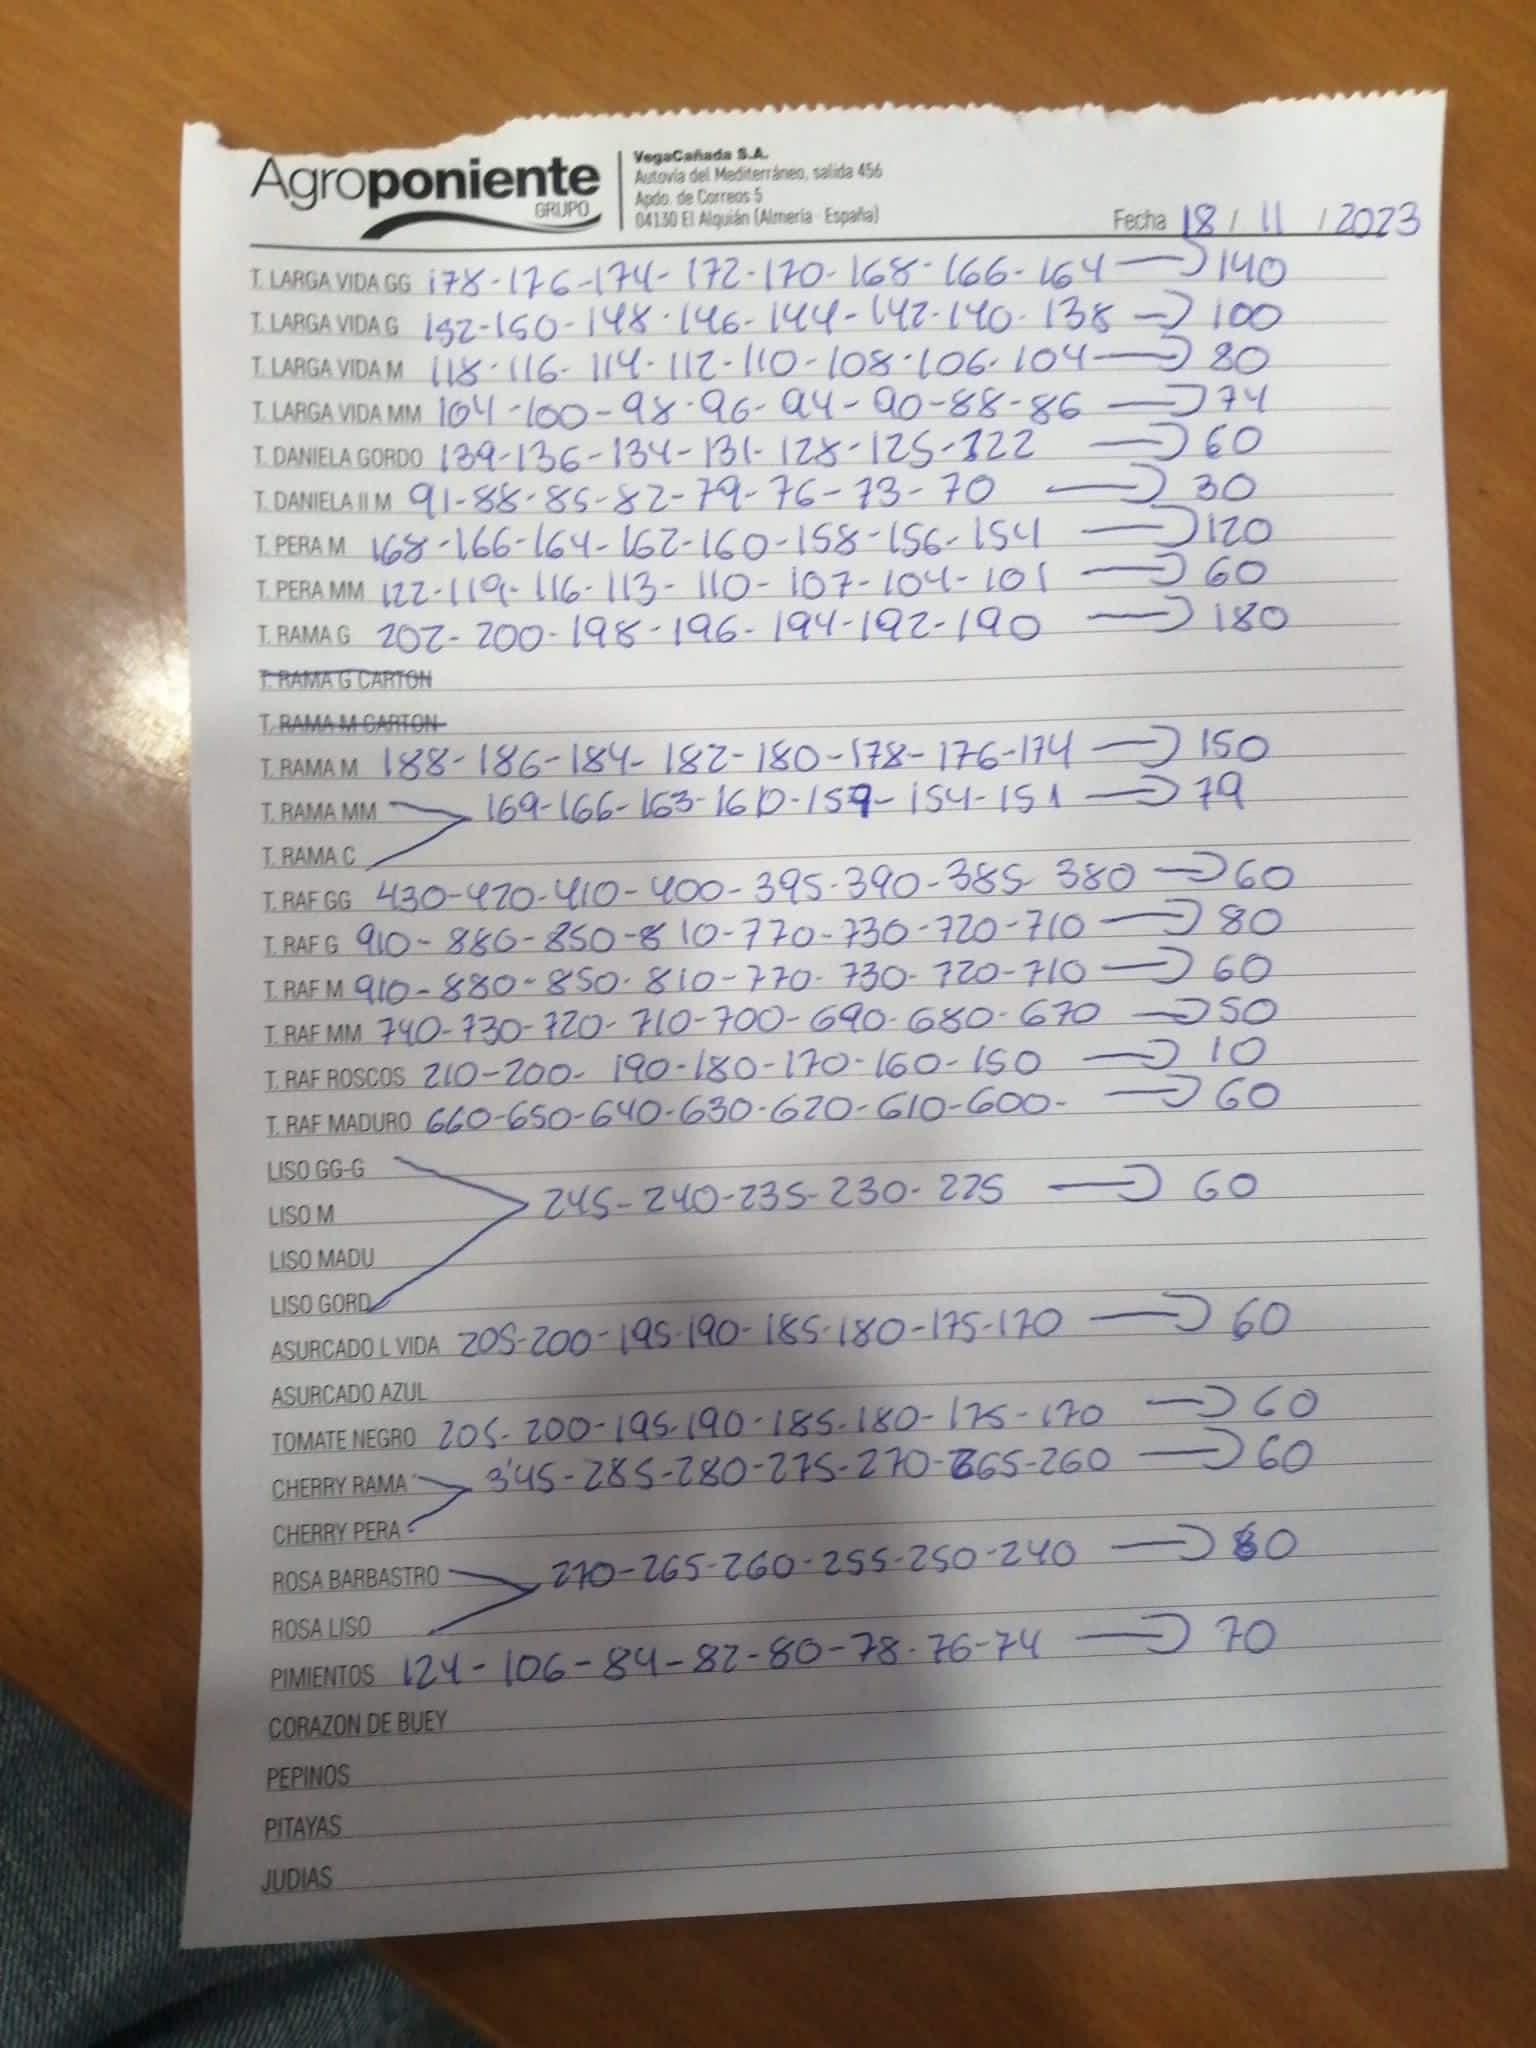 Agroponiente
GRUPO
VegaCañada S.A.
Autovía del Mediterráneo, salida 456
Apdo. de Correos 5
04130 El Alquián (Almería - España)
Fecha 18 / 11 / 2023
T. LARGA VIDA GG 178-176-174-172-170-168-166-164 → 140
T. LARGA VIDA G 152-150-148-146-144-142-140-138 → 100
T. LARGA VIDA M 118-116-114-112-110-108-106-104 → 80
T. LARGA VIDA MM 104-100-98-96-94-90-88-86 → 74
T. DANIELA GORDO 139-136-134-131-128-125-122 → 60
T. DANIELA II M 91-88-85-82-79-76-73-70 → 30
T. PERA M 168-166-164-162-160-158-156-154 → 120
T. PERA MM 122-119-116-113-110-107-104-101 → 60
T. RAMA G 202-200-198-196-194-192-190 → 180
T. RAMA G CARTON
T. RAMA M CARTON
T. RAMA M 188-186-184-182-180-178-176-174 → 150
T. RAMA MM 169-166-163-160-157-154-151 → 79
T. RAMA C
T. RAF GG 430-420-410-400-395-390-385-380 → 60
T. RAF G 910-880-850-810-770-730-720-710 → 80
T. RAF M 910-880-850-810-770-730-720-710 → 60
T. RAF MM 740-730-720-710-700-690-680-670 → 50
T. RAF ROSCOS 210-200-190-180-170-160-150 → 10
T. RAF MADURO 660-650-640-630-620-610-600- → 60
LISO GG-G
LISO M 245-240-235-230-225 → 60
LISO MADU
LISO GORD
ASURCADO L VIDA 205-200-195-190-185-180-175-170 → 60
ASURCADO AZUL
TOMATE NEGRO 205-200-195-190-185-180-175-170 → 60
CHERRY RAMA 3'45-285-280-275-270-265-260 → 60
CHERRY PERA
ROSA BARBASTRO 270-265-260-255-250-240 → 
ROSA LISO
PIMIENTOS 124-106-84-82-80-78-76-74 → 70
CORAZON DE BUEY
PEPINOS
PITAYAS
JUDIAS